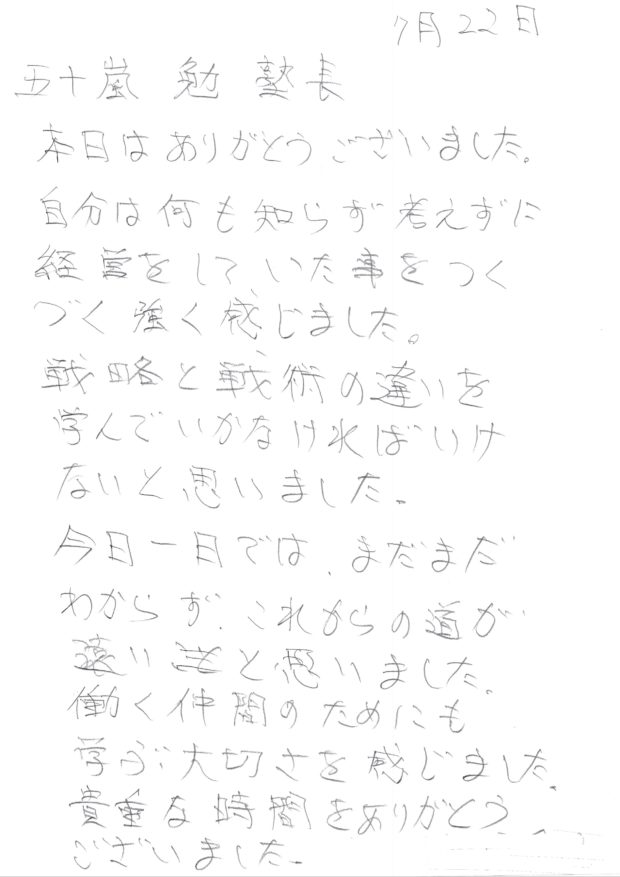 7月22日
五十嵐 勉 塾長
本日はありがとうございました。
自分は何も知らず考えずに
経営をしていた事をつく
づく強く感じました。
戦略と戦術の違いを
学んでいかなければいけ
ないと思いました。
今日一日では、まだまだ
わからず、これからの道が
遠い と思いました。
働く仲間のためにも
学ぶ大切さを感じました。
貴重な時間をありがとう
ございました。